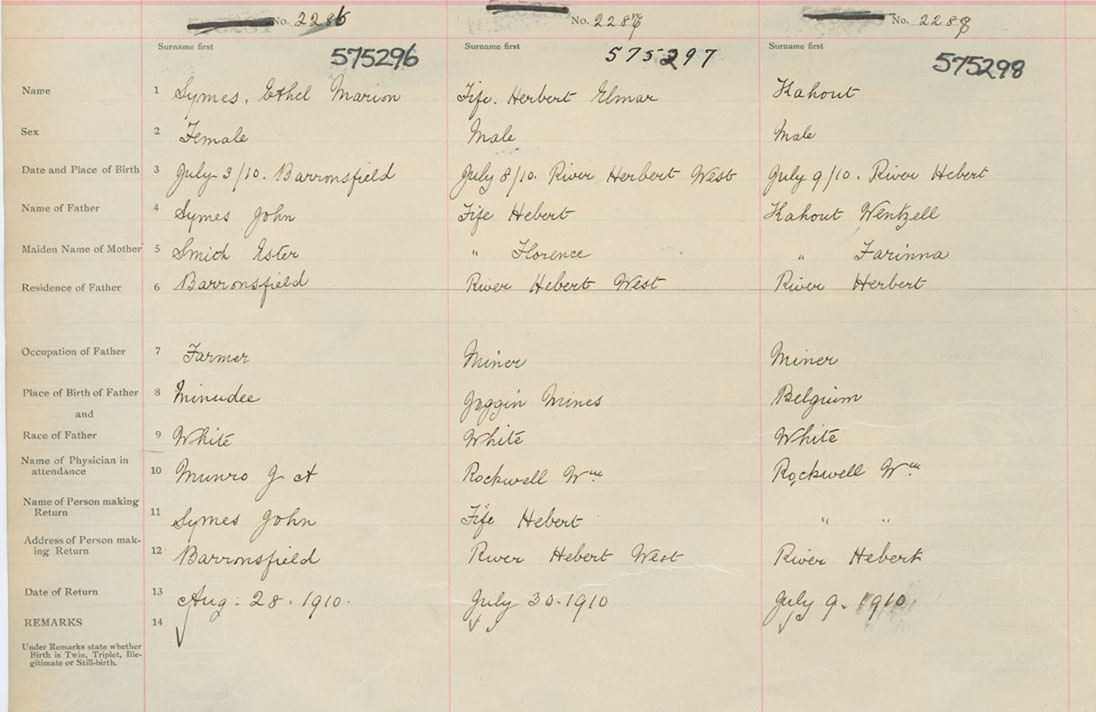 No. 2286 No. 2287 No. 2288
Surname first Surname first Surname first
575296 575297 575298
Name 1 Symes, Ethel Marion Fife. Herbert Elmar Kahout
Sex 2 Female Male Male
Date and Place of Birth 3 July 3/10. Barronsfield July 8/10. River Herbert West July 9/10. River Hebert
Name of Father 4 Symes John Fife Hebert Kahout Wentzell
Maiden Name of Mother 5 Smich Ester " Florence " Farinna
Residence of Father 6 Barronsfield River Hebert West River Herbert
Occupation of Father 7 Farmer Miner Miner
Place of Birth of Father 8 Minudee Joggin Mines Belgium
and
Race of Father 9 White White White
Name of Physician in
attendance 10 Munro J A Rockwell Wm Rockwell Wm
Name of Person making
Return 11 Symes John Fife Hebert " "
Address of Person mak-
ing Return 12 Barronsfield River Hebert West River Hebert
Date of Return 13 Aug: 28. 1910. July 30.1910 July 9. 1910
REMARKS 14
Under Remarks state whether
Birth is Twin, Triplet, Ille-
gitimate or Still-birth.